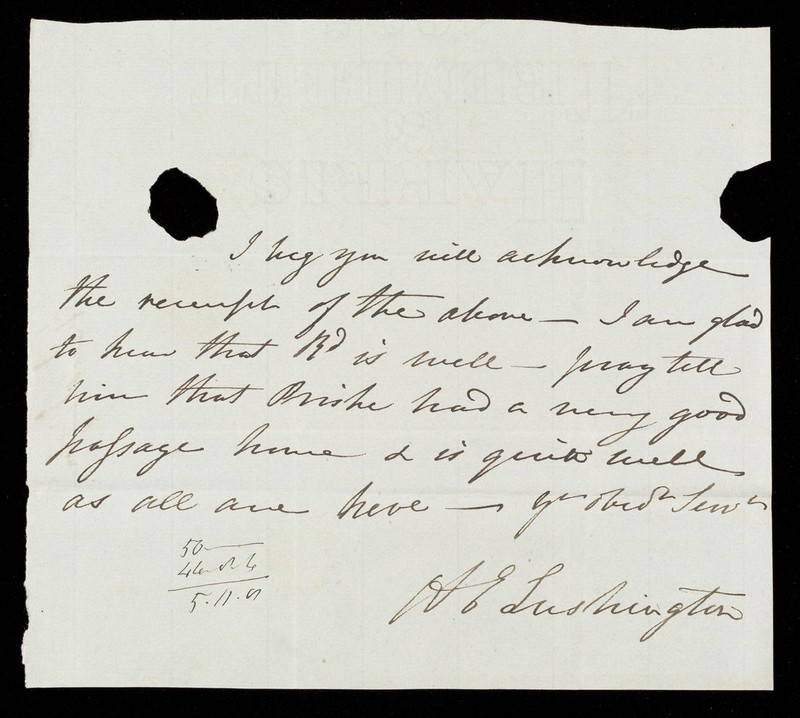 I beg you will acknowledge
the receipt of the above — I am glad
to hear that Rd is well — pray tell
him that Briske had a very good
passage home & is quite well
as all are here — yr obedt Servt
50
5.11.
A E Lushington